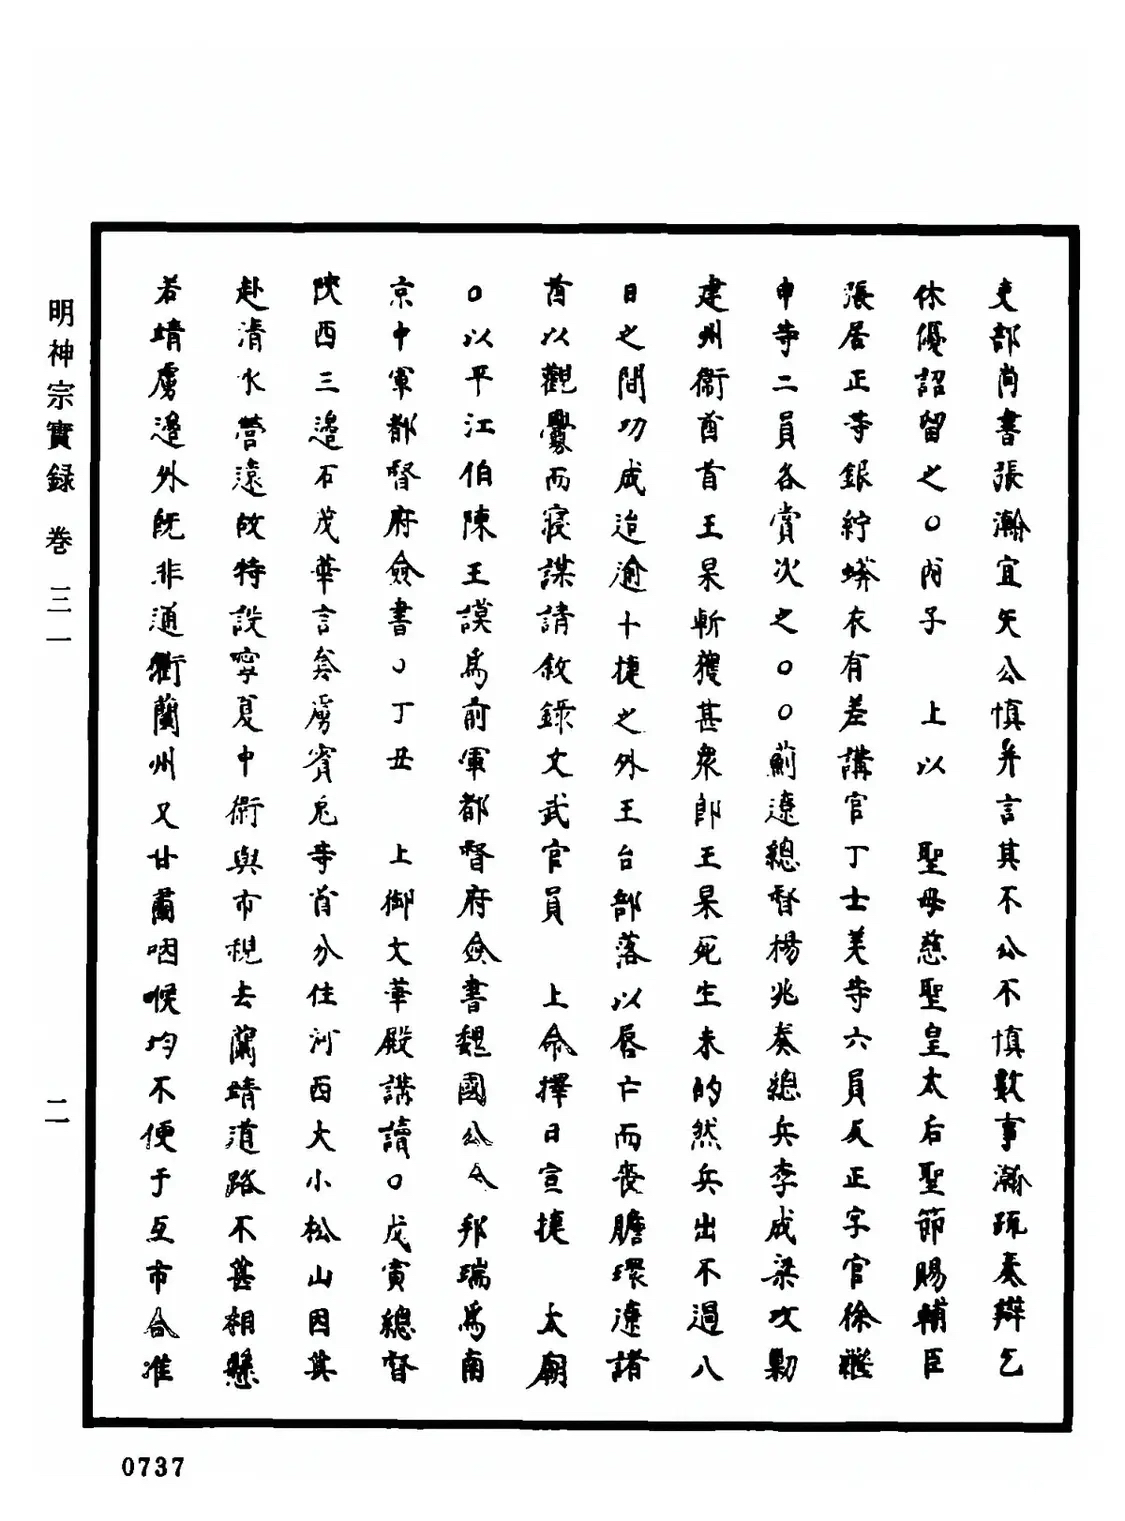 吏部尚書張瀚宜矢公慎并言其不公不慎數事瀚疏奏辯乞
休優詔留之○丙子　上以　聖母慈聖皇太后聖節賜輔臣
張居正等銀紵蟒衣有差講官丁士美等六員及正字官徐繼
申等二員各賞次之○○薊遼總督楊兆奏總兵李成梁攻勦
建州衛酋首王杲斬獲甚衆即王杲死生未的然兵出不過八
日之間功成迨逾十捷之外王台部落以唇亡而喪膽環遼諸
酋以觀釁而寢謀請敘錄文武官員　上命擇日宣捷　太廟
○以平江伯陳王謨爲前軍都督府僉書魏國公公　邦瑞爲南
京中軍都督府僉書○丁丑　上御文華殿講讀○戊寅總督
陝西三邉石茂華言套虜賓兎等酋分住河西大小松山因其
赴清水營遠故特設寧夏中衛與市稅去蘭靖道路不甚相懸
若靖虜邉外既非通衢蘭州又甘蘭咽喉均不便于互市合准
明神宗實録　卷三一　二
0737